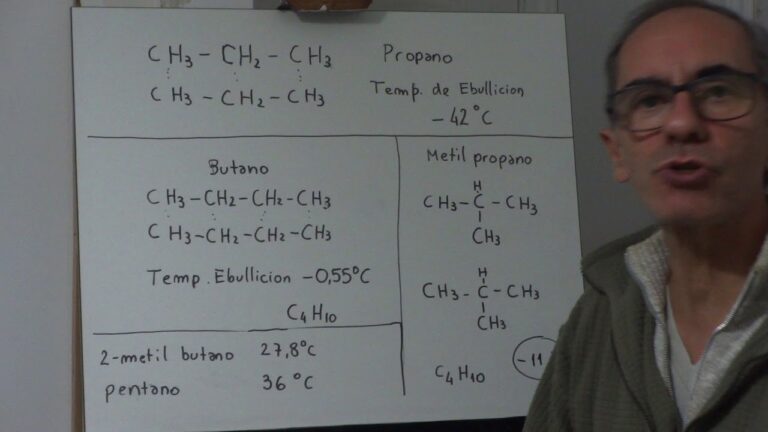 CH3 - CH2 - CH3 Propano
CH3 - CH2 - CH3 Temp. de Ebullicion
-42°C
Butano
CH3-CH2-CH2-CH3
CH3-CH2-CH2-CH3
Temp. Ebullicion -0,55°C
C4H10
2-metil butano 27,8°C
pentano 36°C
Metil propano
H
CH3-C-CH3
CH3
H
CH3-C-CH3
CH3
C4H10